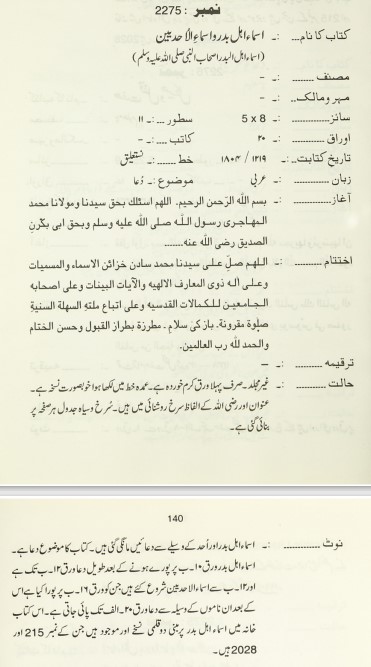 نمبر : 2275
کتاب کا نام ... :۔ اسماء اہل بدر و اسماء الاحدیین
(اسماء اہل البدر اصحاب النبی صلی اللہ علیہ وسلم)
مصنف ........ :۔ ۔
مہر و مالک.. :۔ ۔
سائز ........... :۔ 5 x 8 سطور ...:۔ ۱۱
اوراق ......... :۔ ۲۰ کاتب ....:۔ ۔
تاریخ کتابت ..:۔ ۱۲۱۹ / ۱۸۰۴ خط ......:۔ نستعلیق
زبان ............ :۔ عربی موضوع :۔ دعا
آغاز ............ :۔ بسم الله الرحمن الرحیم. اللهم اسئلك بحق سیدنا ومولانا محمد
المهاجری رسول الله صلی الله علیه وسلم وبحق ابی بکرن
الصدیق رضی الله عنه.......
اختتام ......... :۔ اللهم صل علی سیدنا محمد سادن خزائن الاسماء والمسمیات
وعلی آله ذوی المعارف الالهیه والآیات البینات وعلی اصحابه
الجامعین للکمالات القدسیه وعلی اتباع ملته السهلة السنیة
صلوة مقرونة. بازکی سلام. مطرزة بطراز القبول وحسن الختام
والحمد لله رب العالمین.
ترقیمہ ........ :۔ —
حالت .......... :۔ غیر مجلد۔ صرف پہلا ورق کرم خوردہ ہے۔ عمدہ خط میں لکھا ہوا خوبصورت نسخہ ہے۔
عنوان اور رضی اللہ کے الفاظ سرخ روشنائی میں ہیں۔ سُرخ و سیاہ جدول ہر صفحہ پر
بنائی گئی ہے۔
140
نوٹ ............. :۔ اسماء اہل بدر اور اُحد کے وسیلے سے دعائیں مانگی گئی ہیں۔ کتاب کا موضوع دعا ہے۔
اسماء اہل بدر ورق ۱۰۔ب پر پورے ہونے کے بعد طویل دعا ورق ۱۲۔ب تک ہے
اور ۱۲۔ب سے اسماء الاحدیین شروع کئے گئے ہیں جن کو ورق ۱۶۔ب پر پورا کیا ہے اس
کے بعد ان ناموں کے وسیلہ سے دعا ورق ۲۰۔الف تک پائی جاتی ہے۔ اس کتاب
خانہ میں اسماء اہل بدر پر مبنی دو قلمی نسخے اور موجود ہیں جن کے نمبر 215 اور
2028 ہیں۔